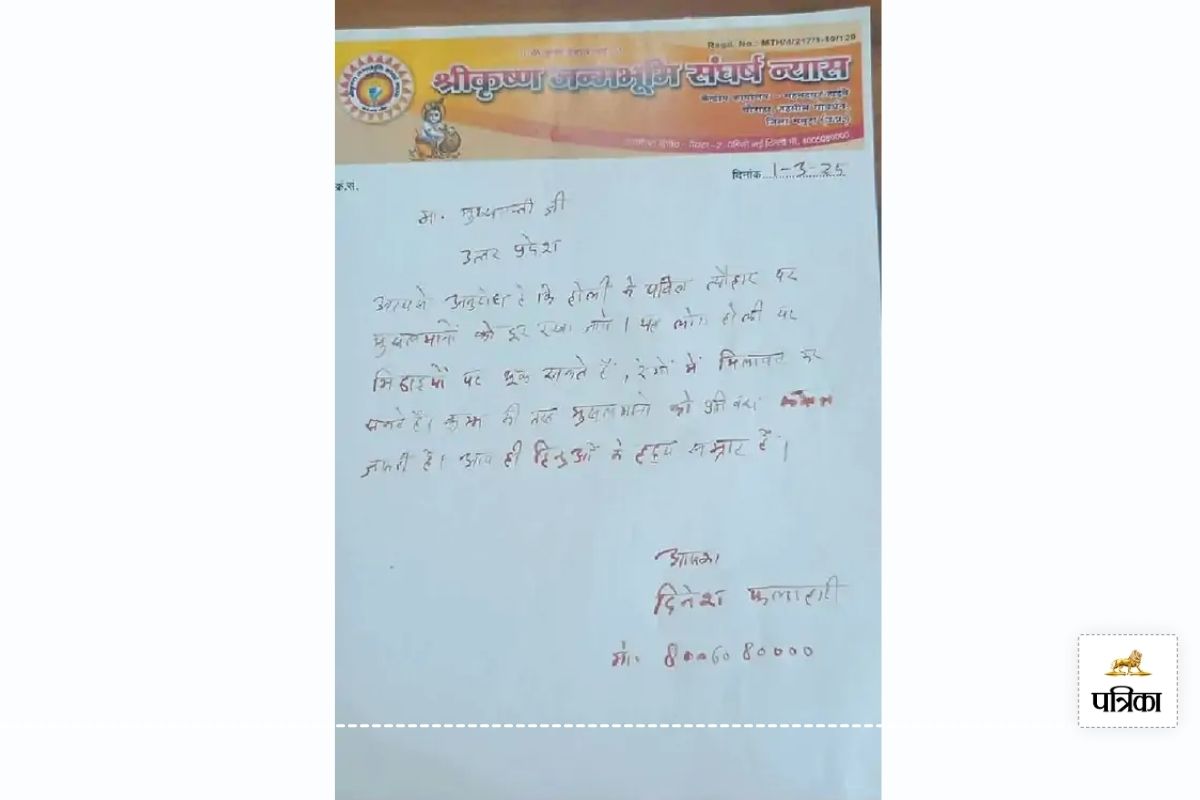 Regd. No.: MTH/4/217/1-80/120
श्रीकृष्ण जन्मभूमि संघर्ष न्यास
जिला मथुरा (उ.प्र.)
क्र.सं.
दिनांक 1-3-25
मा. मुख्यमन्त्री जी
उत्तर प्रदेश
आपसे अनुरोध है कि होली के पवित्र त्यौहार पर
मुसलमानों को दूर रखा जाये। यह लोग होली पर
मिठाइयों पर थूक सकते हैं, रंगों में मिलावट कर
सकते हैं। कुम्भ की तरह मुसलमानों को प्रतिबंध
जरूरी है। आप ही हिन्दुओं के हृदय सम्राट हैं।
आपका
दिनेश फलाहारी
मो. 8006080000
पत्रिका